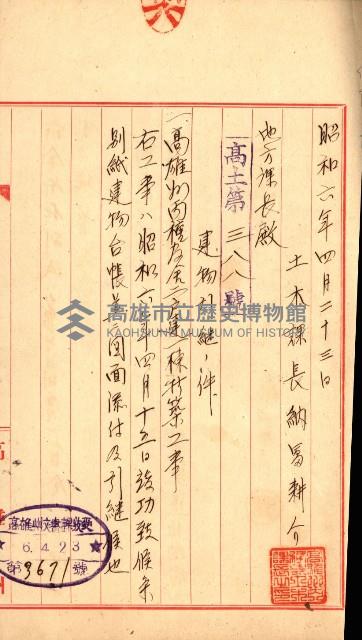 昭和六年四月二十三日
土木課長納富耕介
地方課長殿
高土第三八八號
建物引継ノ件
一、高雄州丙種官舎二戸建一棟新築工事
右工事ハ昭和六年四月十五日竣功致候条
別紙建物台帳並ニ図面添付及引継候也
高雄市立歷史博物館
KAOHSIUNG MUSEUM OF HISTORY
高雄州文書課収受
6.4.23
第9671號